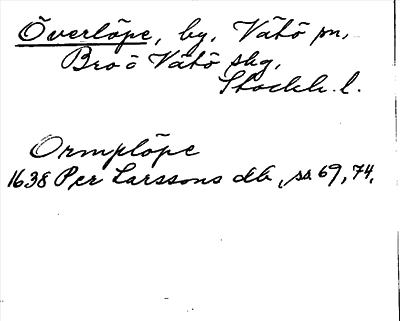 Överlöpe, by, Vätö sn,
Bro o Vätö skg,
Stockh. l.
Ormplöpe
1638 Per Larssons db, ss 69, 74.